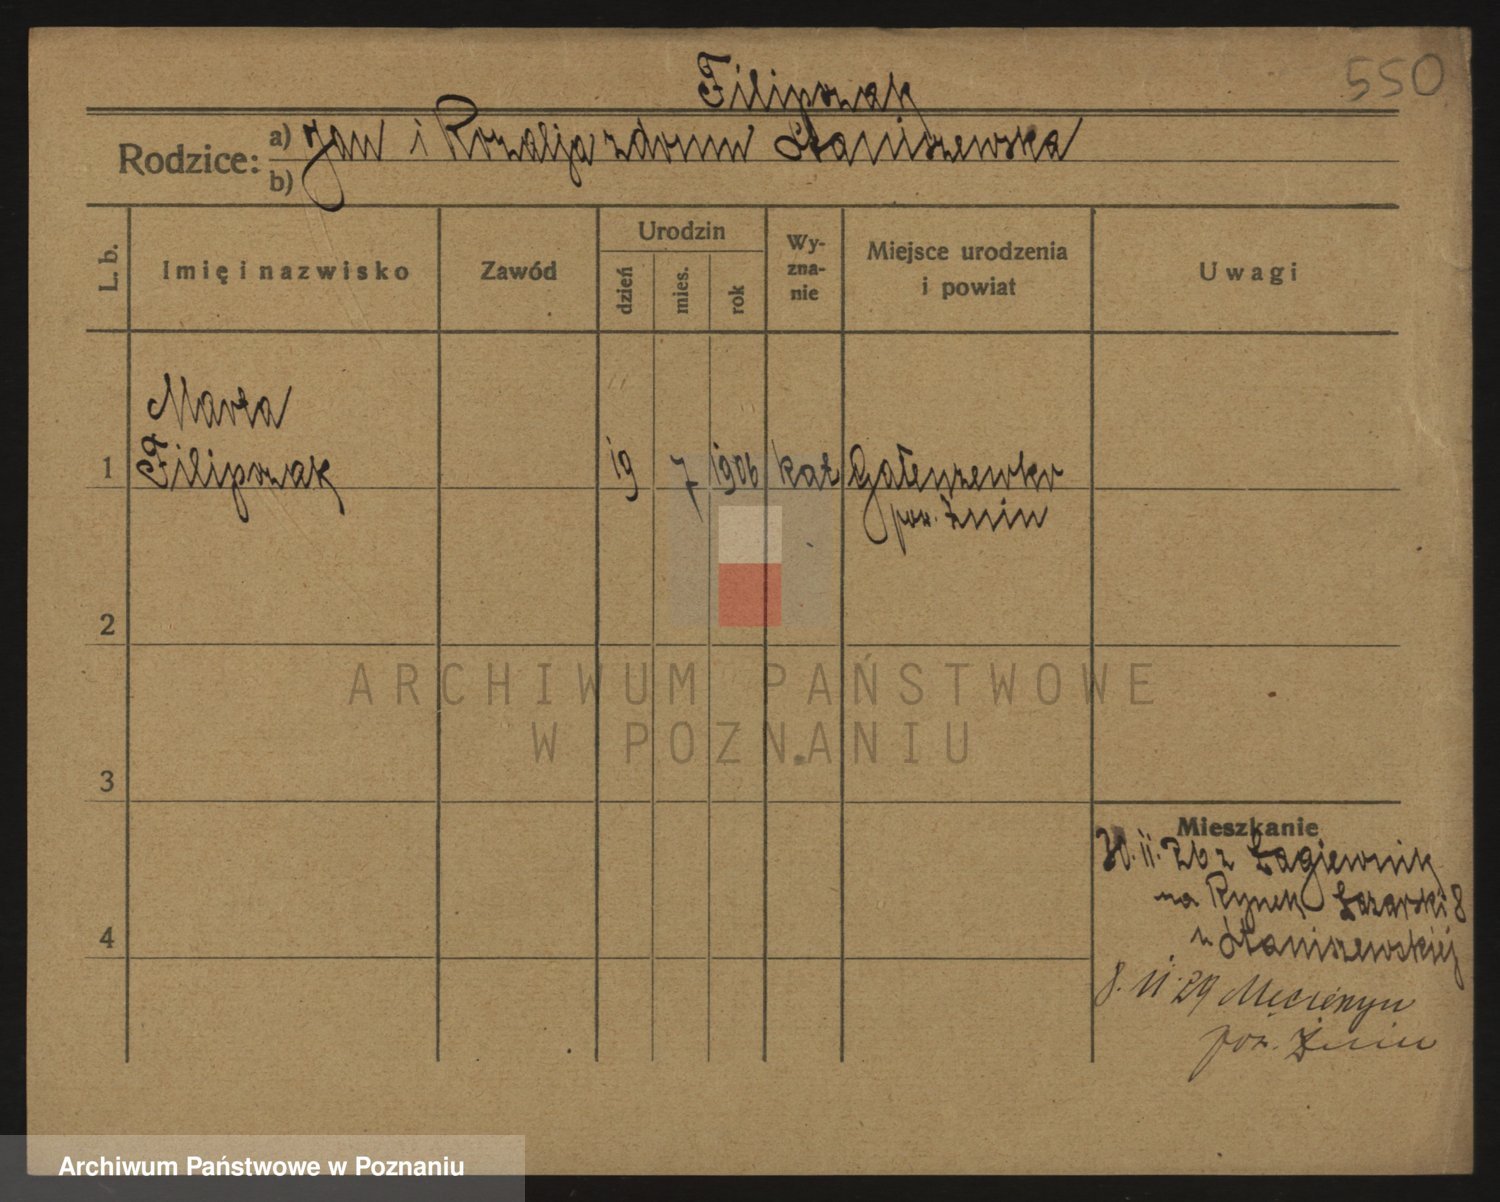 550
Filipczak
Rodzice: a) Jan i Rozalja z domu Staniszewska
b)
L. b.
Imię i nazwisko
Zawód
Urodzin
dzień
mies.
rok
Wy-
zna-
nie
Miejsce urodzenia
i powiat
Uwagi
Marta
1 Filipczak 19 7 1906 kat Gałęzewko
pow. Żnin
2
3
4
Mieszkanie
30.11.26 z Łagiewnik
na Rynek Łazarski 8
u Staniszewskiej
8.11.29
pow. Żnin
ARCHIWUM PAŃSTWOWE
W POZNANIU
Archiwum Państwowe w Poznaniu